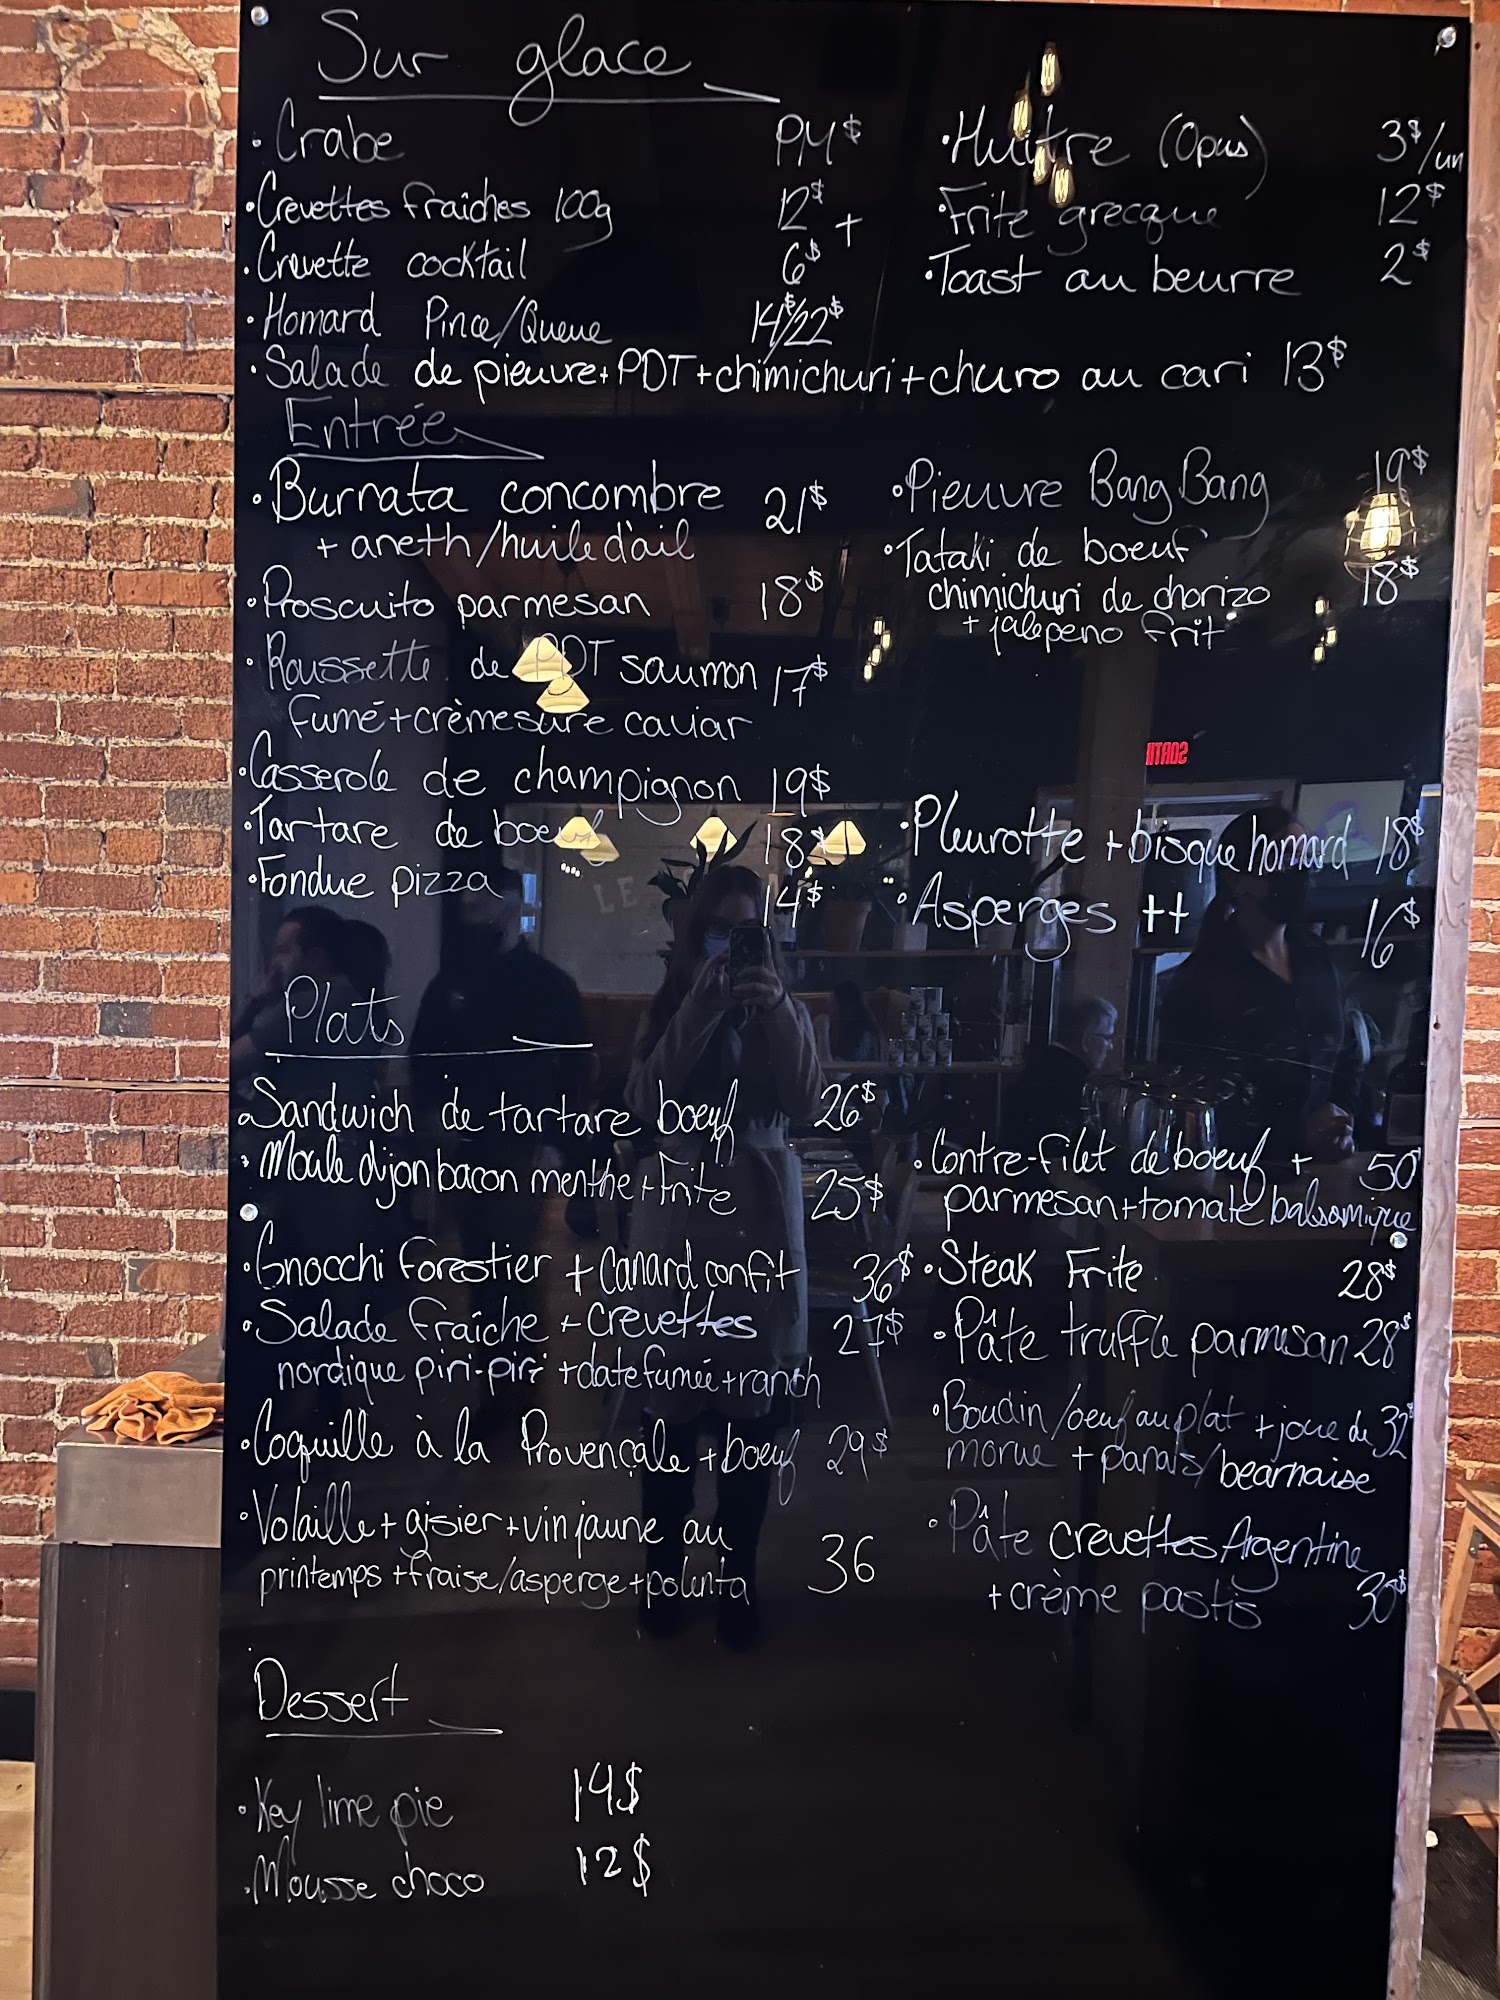 Sur glace
• Crabe PM$
• Crevettes fraîches 100g 12$ +
• Crevette cocktail 6$
• Homard Pince/Queue 14$/22$
• Huître (Opus) 3$/un
• Frite grecque 12$
• Toast au beurre 2$
• Salade de pieuvre + PDT + chimichuri + churo au cari 13$
Entrée
• Burrata concombre 21$
+ aneth/huile d'ail
• Proscuito parmesan 18$
• Roussette de PDT saumon 17$
fumé + crème sure caviar
• Casserole de champignon 19$
• Tartare de boeuf 18$
• Fondue pizza 14$
• Pieuvre Bang Bang 19$
• Tataki de boeuf
chimichuri de chorizo 18$
+ jalepeno frit
SORTIE
• Pleurotte + bisque homard 18$
• Asperges ++ 16$
LE
Plats
• Sandwich de tartare boeuf 26$
• Moule dijon bacon menthe + Frite 25$
• Gnocchi Forestier + Canard confit 36$
• Salade fraîche + crevettes 27$
nordique piri-piri + date fumée + ranch
• Coquille à la Provençale + boeuf 29$
• Volaille + gisier + vin jaune au
printemps + fraise/asperge + polenta 36
• Contre-filet de boeuf + 50
parmesan + tomate balsamique
• Steak Frite 28$
• Pâte truffle parmesan 28$
• Boudin/oeuf au plat + joue de 32$
morue + panais/bearnaise
• Pâte crevettes Argentine
+ crème pastis 30$
Dessert
• Key lime pie 14$
• Mousse choco 12$